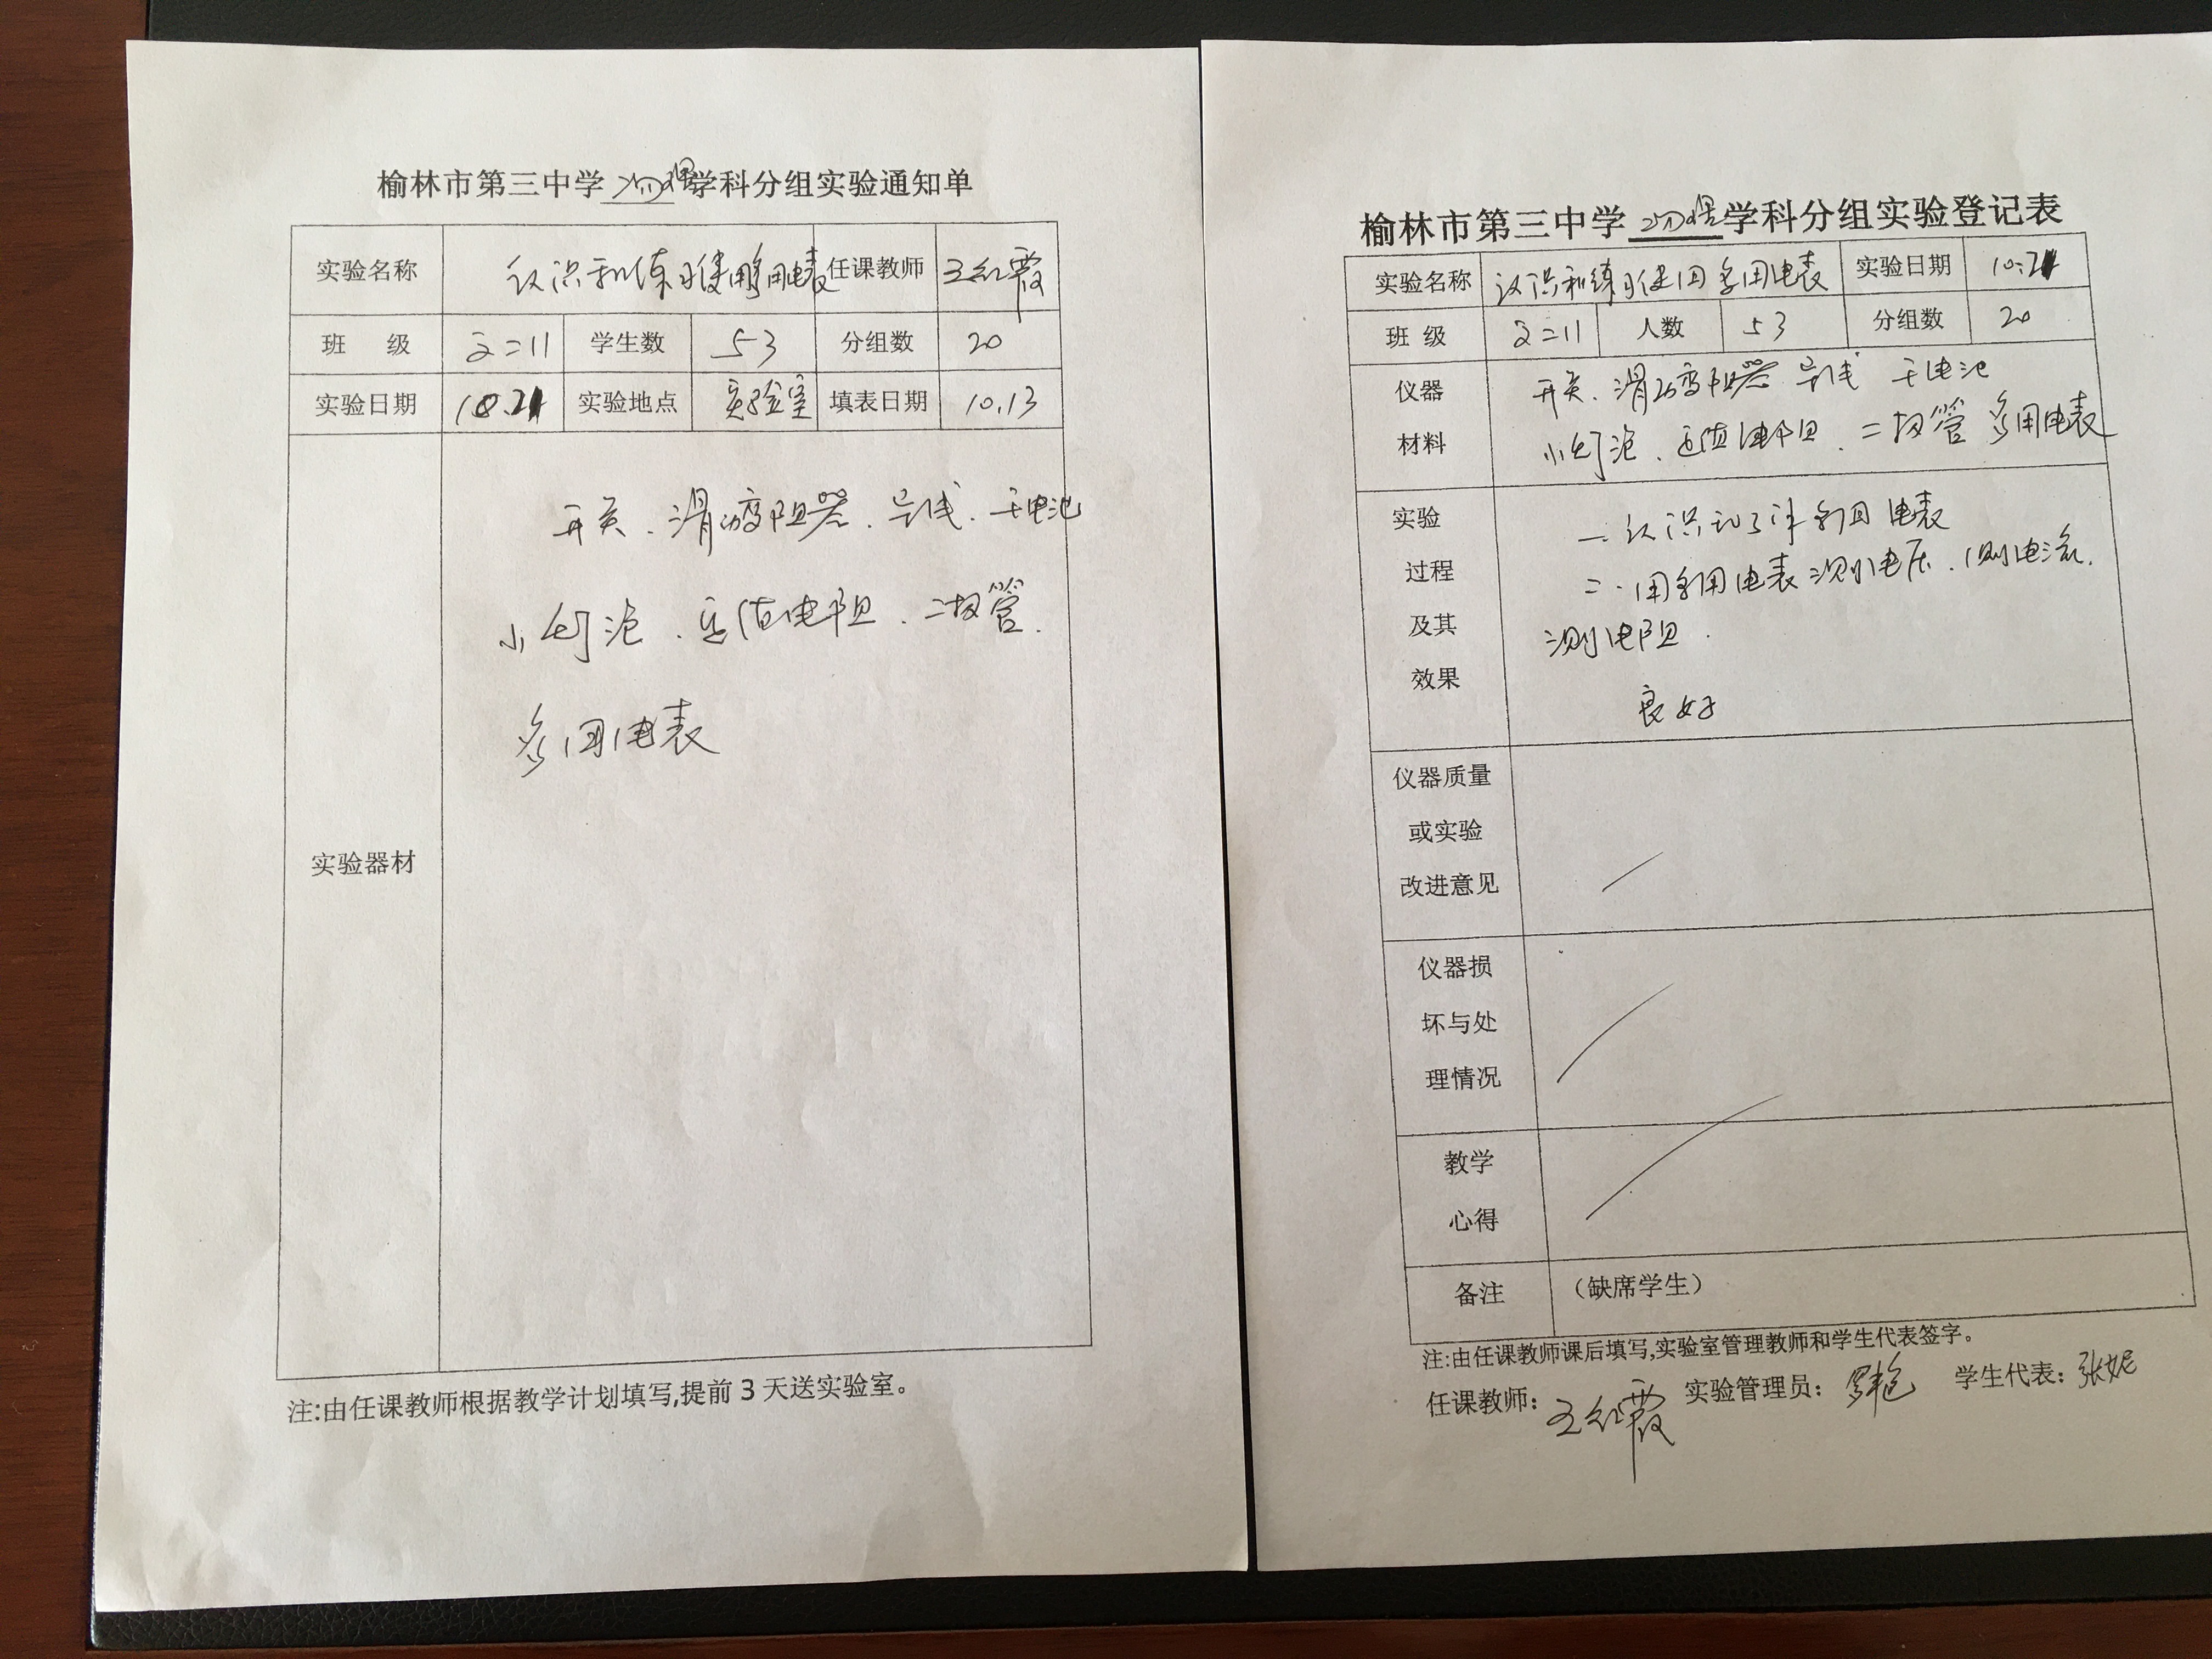 榆林市第三中学物理学科分组实验通知单
实验名称 认识和练习使用多用电表 任课教师 王红霞
班 级 高二11 学生数 53 分组数 20
实验日期 10.21 实验地点 实验室 填表日期 10.13
实验器材
开关、滑动变阻器、导线、干电池
小灯泡、定值电阻、二极管、
多用电表
注:由任课教师根据教学计划填写,提前3天送实验室。
榆林市第三中学物理学科分组实验登记表
实验名称 认识和练习使用多用电表 实验日期 10.21
班 级 高二11 人数 53 分组数 20
仪器材料
开关、滑动变阻器 导线 干电池
小灯泡、定值电阻、二极管 多用电表
实验过程及其效果
一、认识和了解多用电表
二、用多用电表测电压、测电流、
测电阻.
良好
仪器质量或实验改进意见
仪器损坏与处理情况
教学心得
备注 （缺席学生）
注:由任课教师课后填写,实验室管理教师和学生代表签字。
任课教师: 王红霞 实验管理员: 学生代表: 张妮